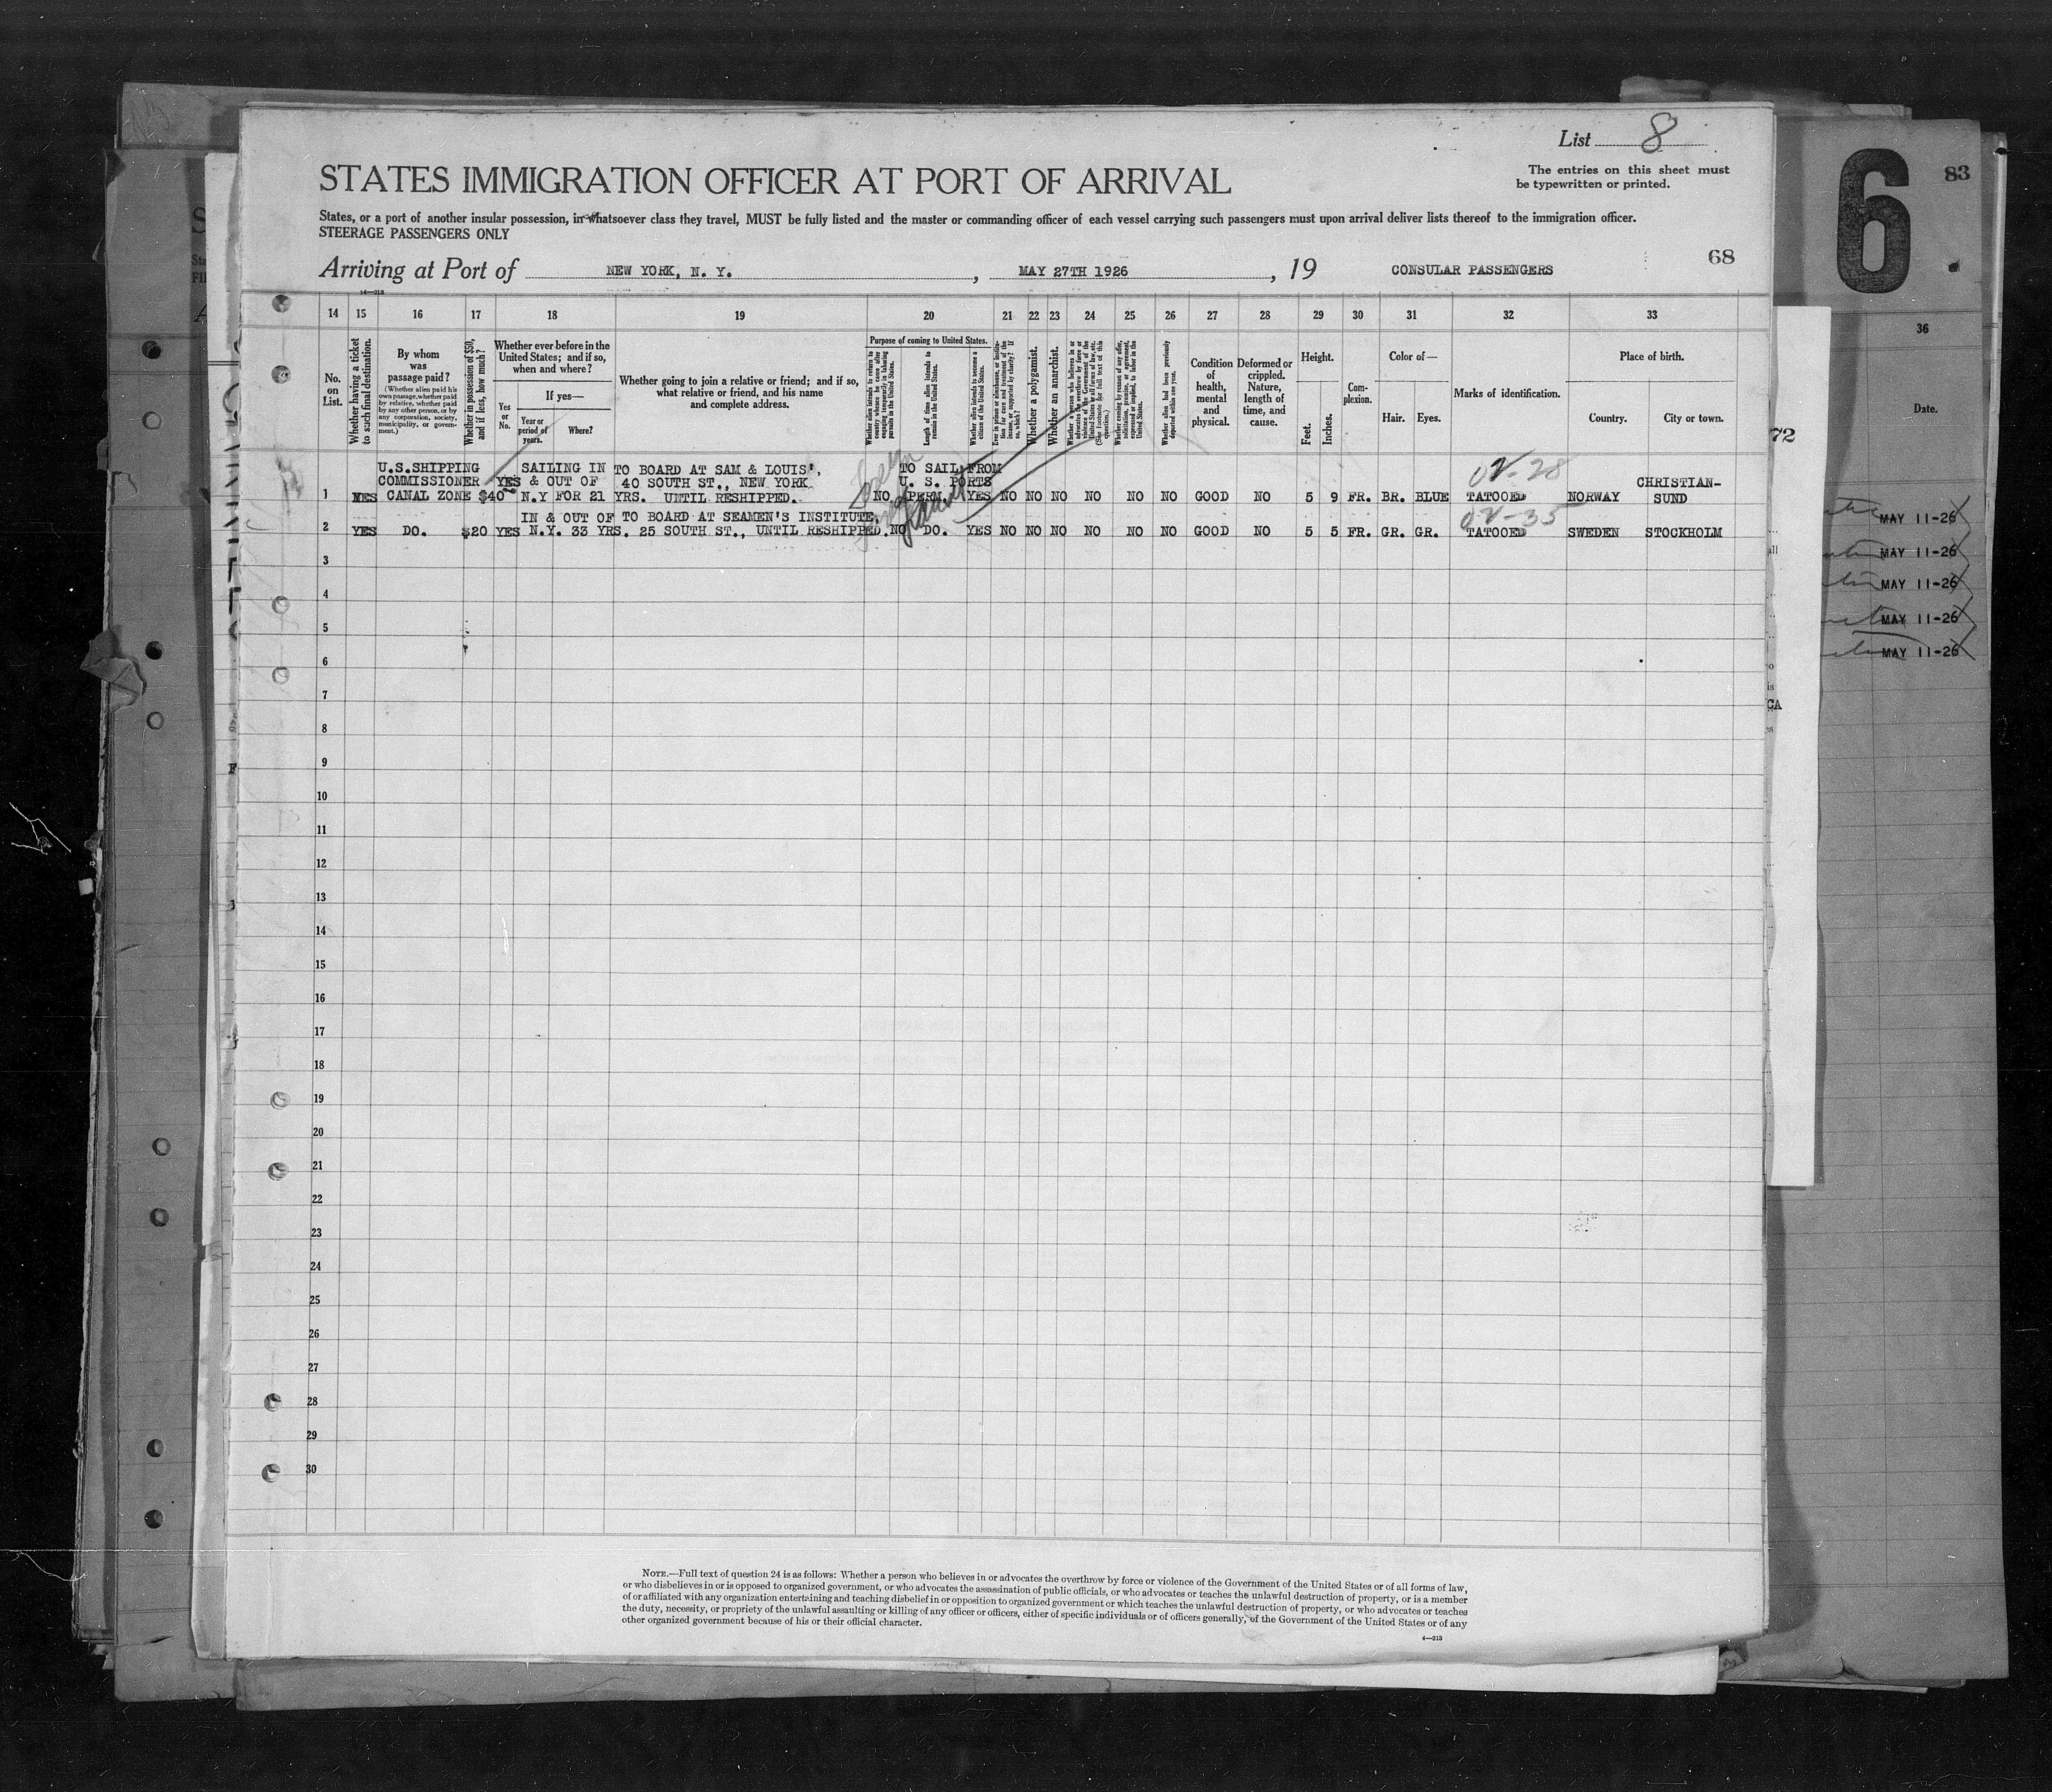 List 8
The entries on this sheet must
be typewritten or printed.
STATES IMMIGRATION OFFICER AT PORT OF ARRIVAL
States, or a port of another insular possession, in whatsoever class they travel, MUST be fully listed and the master or commanding officer of each vessel carrying such passengers must upon arrival deliver lists thereof to the immigration officer.
STEERAGE PASSENGERS ONLY
Arriving at Port of NEW YORK, N. Y. , MAY 27TH 1926 , 19 CONSULAR PASSENGERS
68
6
83
14—213
14 15 16 17 18 19 20 21 22 23 24 25 26 27 28 29 30 31 32 33
36
No. on List.
Whether having a ticket to such final destination.
By whom was passage paid?
(Whether alien paid his own passage, whether paid by relative, whether paid by any other person, or by any corporation, society, municipality, or government.)
Whether in possession of $50, and if less, how much?
Whether ever before in the United States; and if so, when and where?
Yes or No.
If yes—
Year or period of years.
Where?
Whether going to join a relative or friend; and if so, what relative or friend, and his name and complete address.
Purpose of coming to United States.
Whether alien intends to return to country whence he came after engaging temporarily in laboring pursuits in the United States.
Length of time alien intends to remain in the United States.
Whether alien intends to become a citizen of the United States.
Ever in prison or almshouse, or institution for care and treatment of the insane, or supported by charity? If so, which?
Whether a polygamist.
Whether an anarchist.
Whether a person who believes in or advocates the overthrow by force or violence of the Government of the United States or all forms of law, etc. (See footnote for full text of this question.)
Whether coming by reason of any offer, solicitation, promise, or agreement, expressed or implied, to labor in the United States.
Whether alien had been previously deported within one year.
Condition of health, mental and physical.
Deformed or crippled. Nature, length of time, and cause.
Height.
Feet.
Inches.
Complexion.
Color of—
Hair. Eyes.
Marks of identification.
Place of birth.
Country. City or town.
Date.
72
U.S.SHIPPING SAILING IN TO BOARD AT SAM & LOUIS', TO SAIL FROM OV-28
COMMISSIONER YES & OUT OF 40 SOUTH ST., NEW YORK U. S. PORTS CHRISTIAN-
1 YES CANAL ZONE $40 N.Y FOR 21 YRS. UNTIL RESHIPPED. NO PERM. YES NO NO NO NO NO NO GOOD NO 5 9 FR. BR. BLUE TATOOED NORWAY SUND
IN & OUT OF TO BOARD AT SEAMEN'S INSTITUTE, OV-35
2 YES DO. $20 YES N.Y. 33 YRS. 25 SOUTH ST., UNTIL RESHIPPED. NO DO. YES NO NO NO NO NO NO GOOD NO 5 5 FR. GR. GR. TATOOED SWEDEN STOCKHOLM
3
4
5
6
7
8
9
10
11
12
13
14
15
16
17
18
19
20
21
22
23
24
25
26
27
28
29
30
MAY 11-26
MAY 11-26
MAY 11-26
MAY 11-26
MAY 11-26
CA
NOTE.—Full text of question 24 is as follows: Whether a person who believes in or advocates the overthrow by force or violence of the Government of the United States or of all forms of law,
or who disbelieves in or is opposed to organized government, or who advocates the assassination of public officials, or who advocates or teaches the unlawful destruction of property, or is a member
of or affiliated with any organization entertaining and teaching disbelief in or opposition to organized government or which teaches the unlawful destruction of property, or who advocates or teaches
the duty, necessity, or propriety of the unlawful assaulting or killing of any officer or officers, either of specific individuals or of officers generally, of the Government of the United States or of any
other organized government because of his or their official character.
4—213